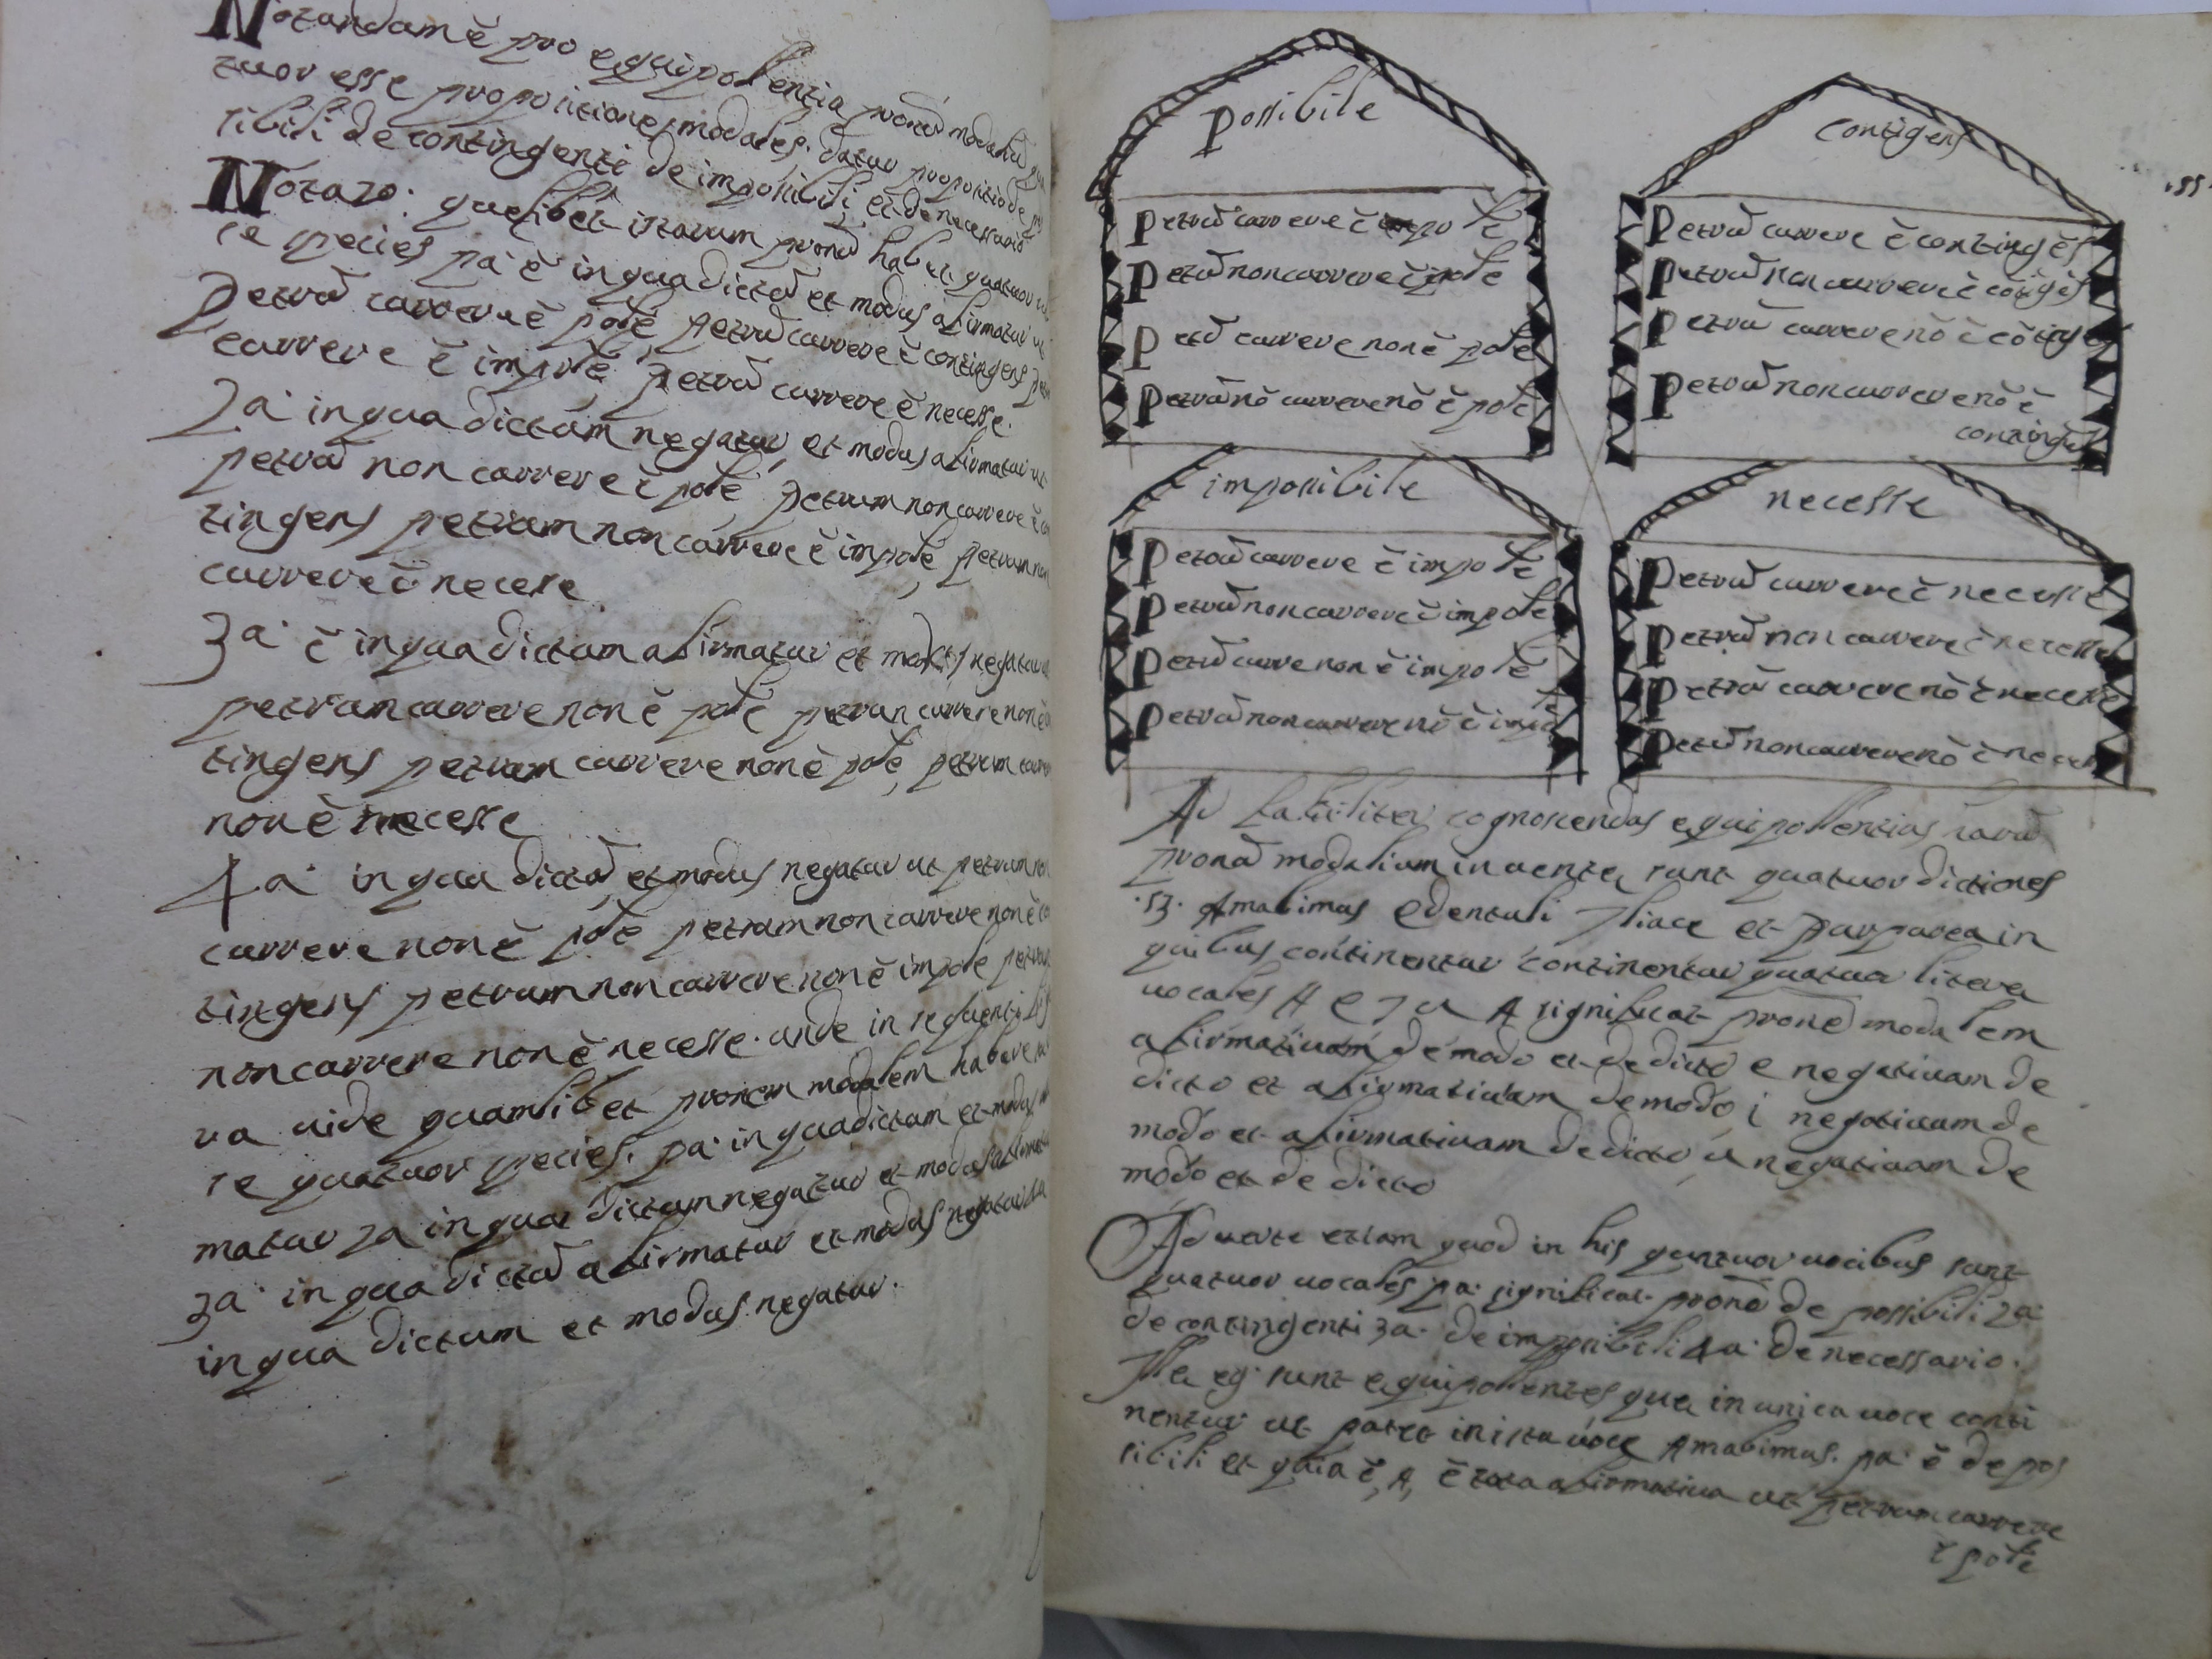 Notandum ẽ pro equipolentia pronũ modaliũ
tuor esse propositiones modales. datur propositio de
sibili de contingenti de impossibili et de necessario
Nota 2o: quelibet istarum pronũ habet quatuor
se species pa ẽ in qua dictũ et modus afirmatur ut
Petrũ currere ẽ pole petrũ currere ẽ contingens
currere ẽ impole, petrũ currere ẽ necesse.
2a. in qua dictum negatur et modus afirmatur ut
petrũ non currere ẽ pole petrum non currere ẽ
tingens petrum non currere ẽ impole petrum non
currere ẽ necese
3a. ẽ in qua dictum afirmatur et modus negatur
petrum currere non ẽ pole petrun currere non ẽ
tingens petrum currere non ẽ pole, petrum
non ẽ necesse
4a. in qua dictũ et modus negatur ut petrum
currere non ẽ pole petrum non currere non ẽ
tingens petrum non currere non ẽ impole
non currere non ẽ necesse. unde in sequenti
ra vide quamlibet pronem modalem habere
se quatuor species. pa. in qua dictum et modus
matur 2a in qua dictum negatur et modus afirmatur
3a. in qua dictũ afirmatur et modus negatur
in qua dictum et modus negatur.
possibile
Petrũ currere ẽ pole
Petrũ non currere ẽ pole
Petrũ currere non ẽ pole
Petrũ nõ currere nõ ẽ pole
contigens
Petrũ currere ẽ contingẽs
Petrũ non currere ẽ cõtigẽs
Petrũ currere nõ ẽ cõtigẽs
Petrũ non currere nõ ẽ
contingẽs
imposibile
Petrũ currere ẽ impole
Petrũ non currere ẽ impole
Petrũ curre non ẽ impole
Petrũ non currere nõ ẽ
necesse
Petrũ currere ẽ necesse
Petrũ non currere ẽ necesse
Petrũ currere nõ ẽ necesse
Petrũ non currere nõ ẽ
Ad faciliter cognoscendas equipollentias harũ
pronũ modalium inventę sunt quatuor dictiones
.sz. Amabimus Edentuli Iliace et Purpurea in
quibus continentur continentur quatuor literę
vocales A e I u A significat pronẽ modalem
afirmativam de modo et de dicto e negativam de
dicto et afirmativam de modo i negativam de
modo et afirmativam de dicto u negativam de
modo et de dicto
Adverte etiam quod in his quatuor vocibus sunt
quatuor vocales pa. significat pronẽ de possibili 2a
de contingenti 3a. de imposibili 4a. de necessario.
Illę eg. sunt equipolentes quę in unica voce conti
nentur ut patet in ista vocę Amabimus. pa. ẽ de pos
sibili et quia ẽ, A, ẽ tota afirmativa ut petrum currere
ẽ pole